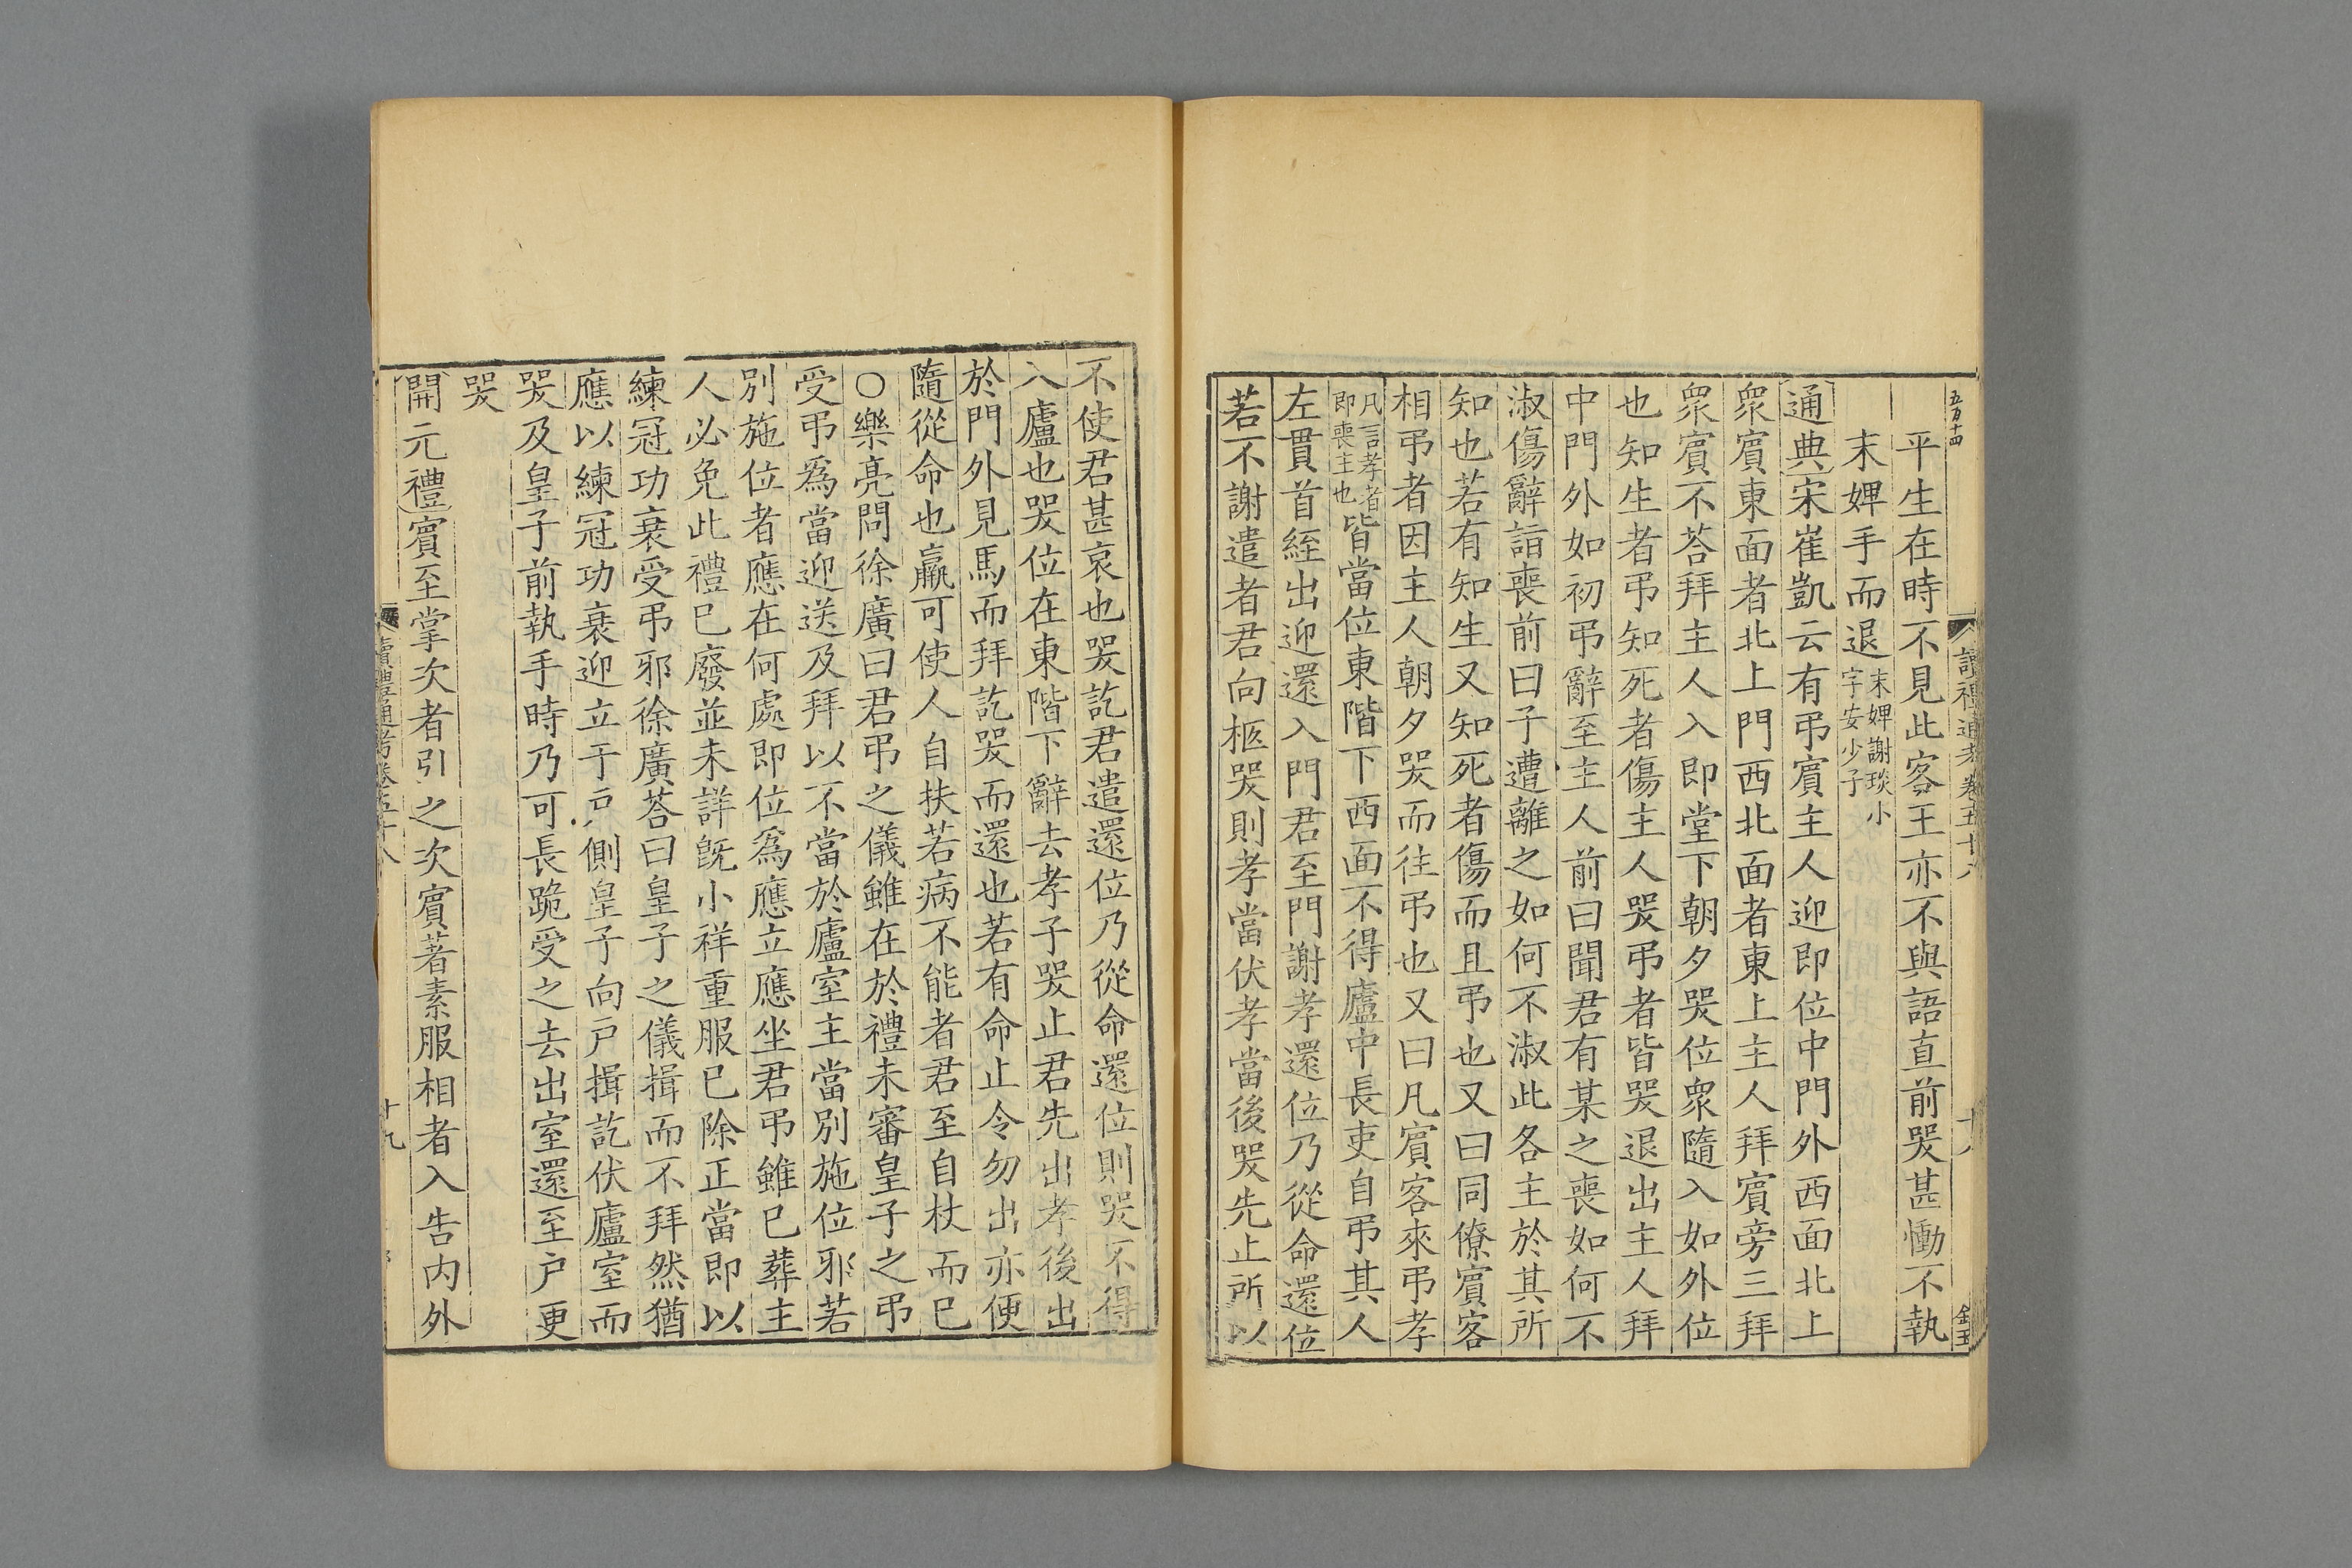 五百十四
讀禮通考卷五十八
十八
平生在時不見此客王亦不與語直前哭甚慟不執
末婢手而退末婢謝琰小字安少子
通典宋崔凱云有弔賓主人迎即位中門外西面北上
衆賓東面者北上門西北面者東上主人拜賓旁三拜
衆賓不荅拜主人入即堂下朝夕哭位衆隨入如外位
也知生者弔知死者傷主人哭弔者皆哭退出主人拜
中門外如初弔辭至主人前曰聞君有某之喪如何不
淑傷辭詣喪前曰子遭離之如何不淑此各主於其所
知也若有知生又知死者傷而且弔也又曰同僚賓客
相弔者因主人朝夕哭而往弔也又曰凡賓客來弔孝
凡言孝者即喪主也皆當位東階下西面不得廬中長吏自弔其人
左貫首絰出迎還入門君至門謝孝還位乃從命還位
若不謝遣者君向柩哭則孝當伏孝當後哭先止所以
不使君甚哀也哭訖君遣還位乃從命還位則哭不得
入廬也哭位在東階下辭去孝子哭止君先出孝後出
於門外見馬而拜訖哭而還也若有命止令勿出亦便
隨從命也羸可使人自扶若病不能者君至自杖而已
○樂亮問徐廣曰君弔之儀雖在於禮未審皇子之弔
受弔爲當迎送及拜以不當於廬室主當別施位邪若
別施位者應在何處即位爲應立應坐君弔雖已葬主
人必免此禮已廢並未詳旣小祥重服已除正當即以
練冠功衰受弔邪徐廣荅曰皇子之儀揖而不拜然猶
應以練冠功衰迎立于戶側皇子向戶揖訖伏廬室而
哭及皇子前執手時乃可長跪受之去出室還至戶更
哭
開元禮賓至掌次者引之次賓著素服相者入告内外
讀禮通考卷五十八
十九